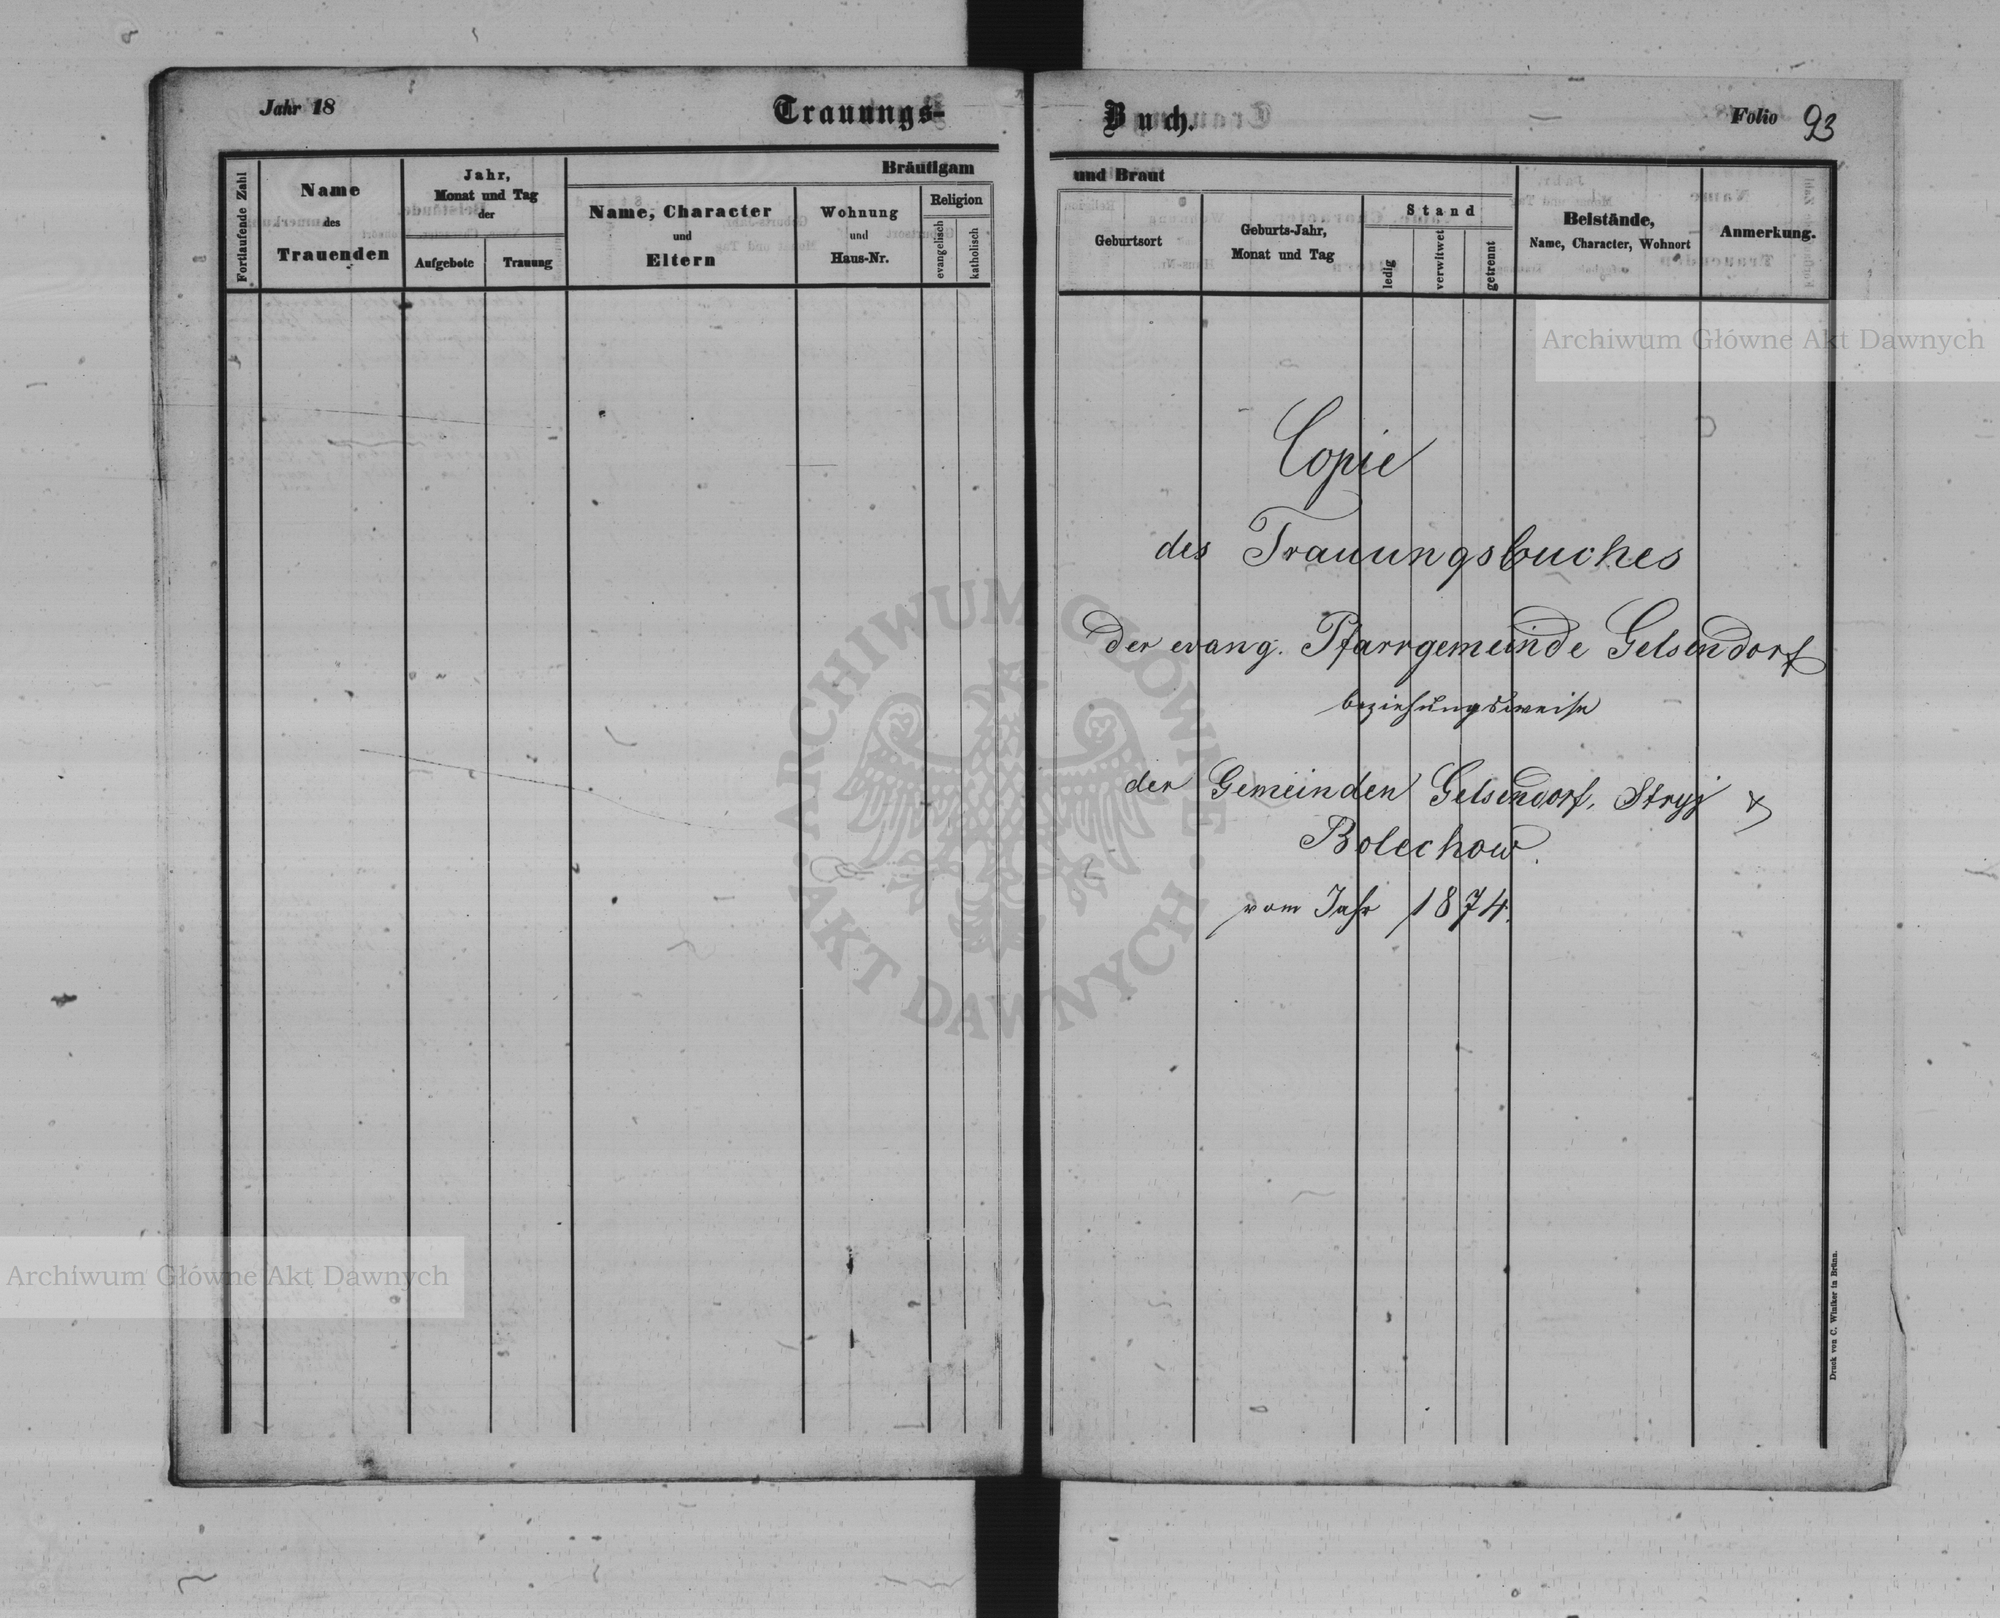 Jahr 18
Trauungs-
Buch.
Folio 93
Fortlaufende Zahl
Name
des
Trauenden
Jahr,
Monat und Tag
der
Aufgebote
Trauung
Bräutigam
Name, Character
und
Eltern
Wohnung
und
Haus-Nr.
Religion
evangelisch
katholisch
und Braut
Geburtsort
Geburts-Jahr,
Monat und Tag
Stand
ledig
verwitwet
getrennt
Beistände,
Name, Character, Wohnort
Anmerkung.
Copie
des Trauungsbuches
der evang. Pfarrgemeinde Gelsendorf
beziehungsweise
der Gemeinden Gelsendorf, Stryj &
Bolechow.
vom Jahr 1874.
Druck von C. Winiker in Brünn.
Archiwum Główne Akt Dawnych
Archiwum Główne Akt Dawnych
ARCHIWUM GŁÓWNE AKT DAWNYCH